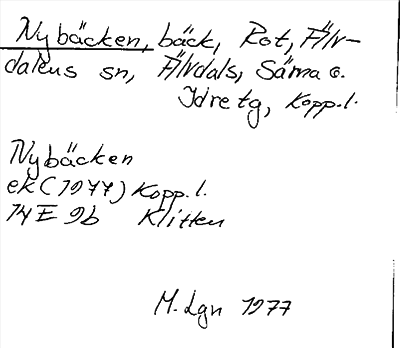 Nybäcken, bäck, Rot, Älv-
dalens sn, Älvdals, Särna o.
Idre tg, Kopp.l.
Nybäcken
ek (1977) Kopp.l.
14E 9b Klitten
M. Lgn 1977